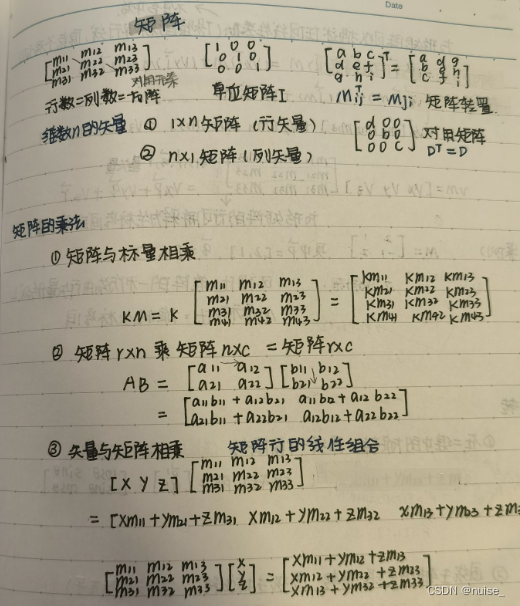 Date
矩阵
[m11 m12 m13
m21 m22 m23
m31 m32 m33]
对角元素
行数=列数=方阵
[1 0 0
0 1 0
0 0 1]
单位矩阵I
[a b c
d e f
g h i]T = [a d g
b e h
c f i]
MijT = Mji 矩阵转置
维数n的矢量 ① 1×n矩阵(行矢量)
② n×1矩阵(列矢量)
[a 0 0
0 b 0
0 0 c] 对角矩阵
DT = D
矩阵的乘法
① 矩阵与标量相乘
KM = K [m11 m12 m13
m21 m22 m23
m31 m32 m33
m41 m42 m43] = [Km11 Km12 Km13
Km21 Km22 Km23
Km31 Km32 Km33
Km41 Km42 Km43]
② 矩阵r×n 乘 矩阵n×c = 矩阵r×c
AB = [a11 a12
a21 a22] [b11 b12
b21 b22]
= [a11b11 + a12b21 a11b12 + a12b22
a21b11 + a22b21 a21b12 + a22b22]
③ 矢量与矩阵相乘 矩阵行的线性组合
[x y z] [m11 m12 m13
m21 m22 m23
m31 m32 m33]
= [xm11 + ym21 + zm31 xm12 + ym22 + zm32 xm13 + ym23 + zm3
[m11 m12 m13
m21 m22 m23
m31 m32 m33] [x
y
z] = [xm11 + ym12 + zm13
xm12 + ym22 + zm23
xm13 + ym32 + zm33]
CSDN @nuise_